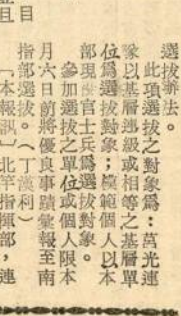 選拔辦法。
此項選拔之對象爲：莒光連
隊以基層連級或相等之基層單
位爲選拔對象；模範個人以本
部現役官士兵爲選拔對象。
參加選拔之單位或個人限本
月六日前將優良事蹟彙報至南
指部選拔。（丁漢利）
〔本報訊〕北竿指揮部，連
目
且